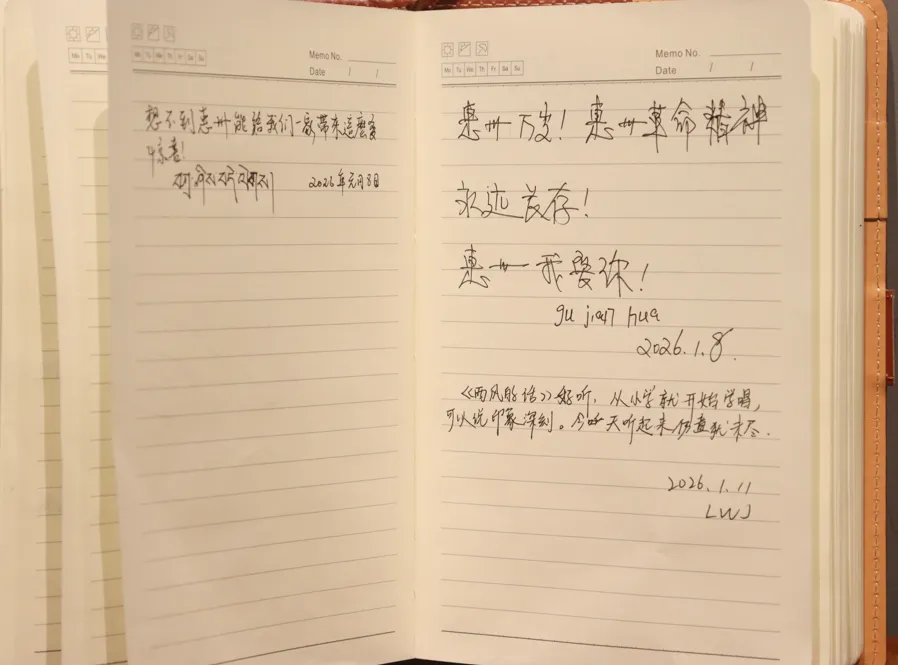 Mo Tu We
Mo Tu We Th Fr Sa Su
Memo No.
Date / /
想不到惠州能给我们一家带来这麽多
惊喜!
བཀྲ་ཤིས་བདེ་ལེགས།
2026年元月8日
Mo Tu We Th Fr Sa Su
Memo No.
Date / /
惠州万岁! 惠州革命精神
永远长存!
惠州我爱你!
gu jian hua
2026.1.8.
《西风的话》好听,从小学就开始学唱,
可以说印象深刻。今天听起来仍意犹未尽.
2026.1.11
LWJ